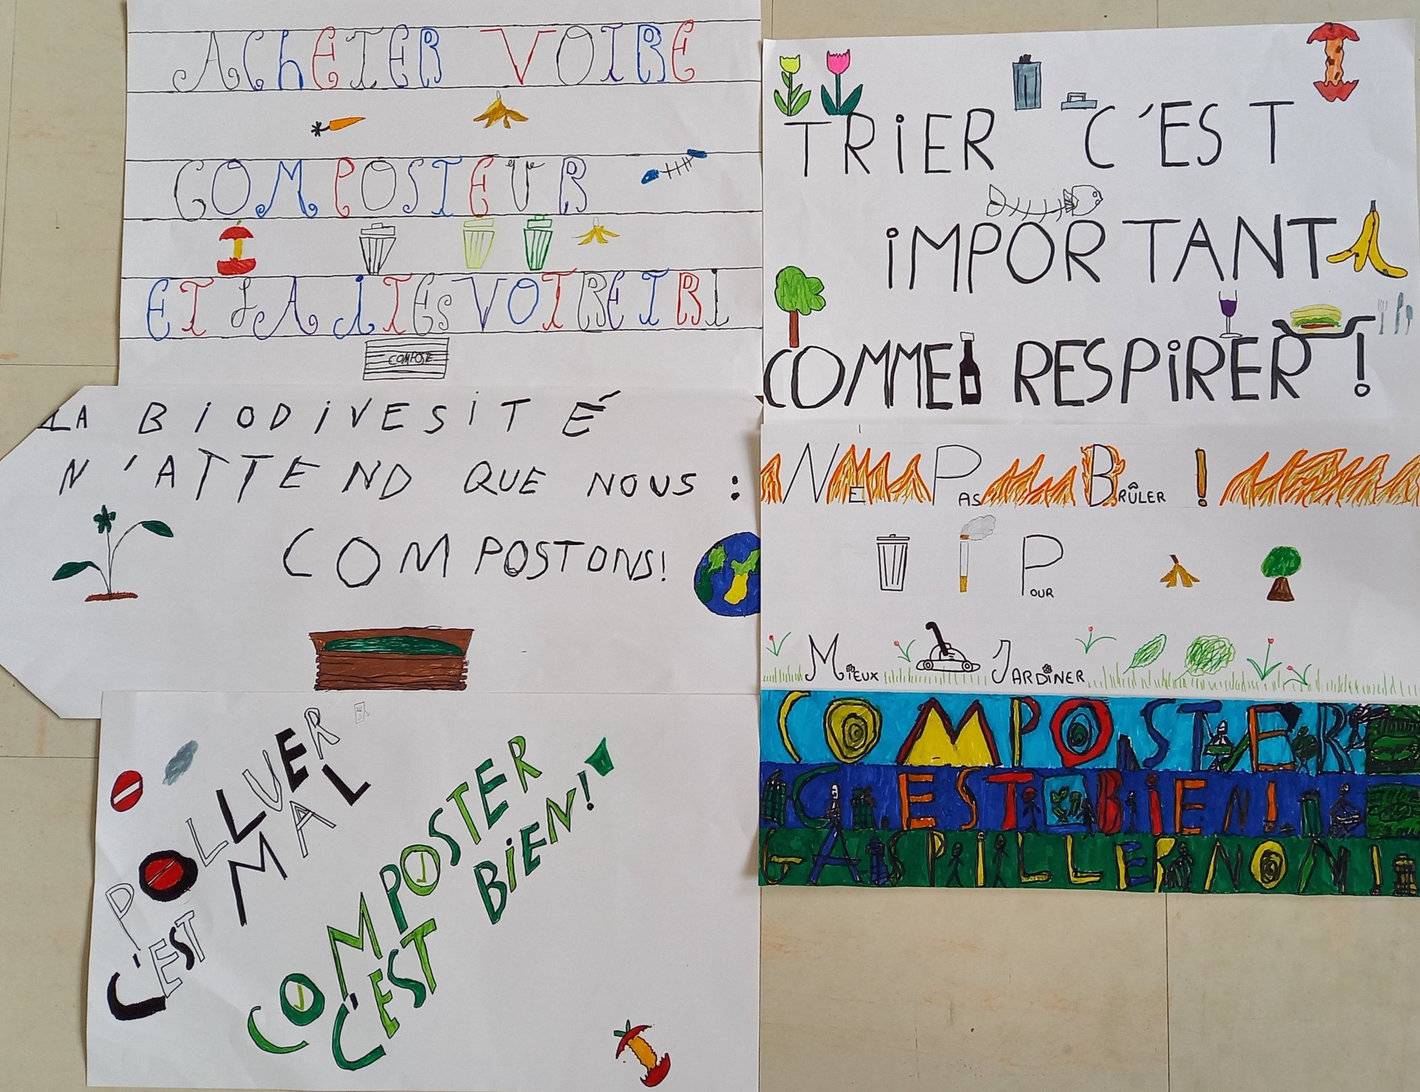 ACHETER VOTRE
COMPOSTEUR
ET FAITES VOTRE TRI
COMPOSE
LA BIODIVESITÉ
N'ATTEND QUE NOUS :
COMPOSTONS!
POLLUER
C'EST MAL
COMPOSTER
C'EST BIEN!
TRIER C'EST
IMPORTANT
COMME RESPIRER !
NE PAS BRÛLER !
POUR
MIEUX JARDINER
COMPOSTER
C'EST BIEN !
GASPILLER NON !